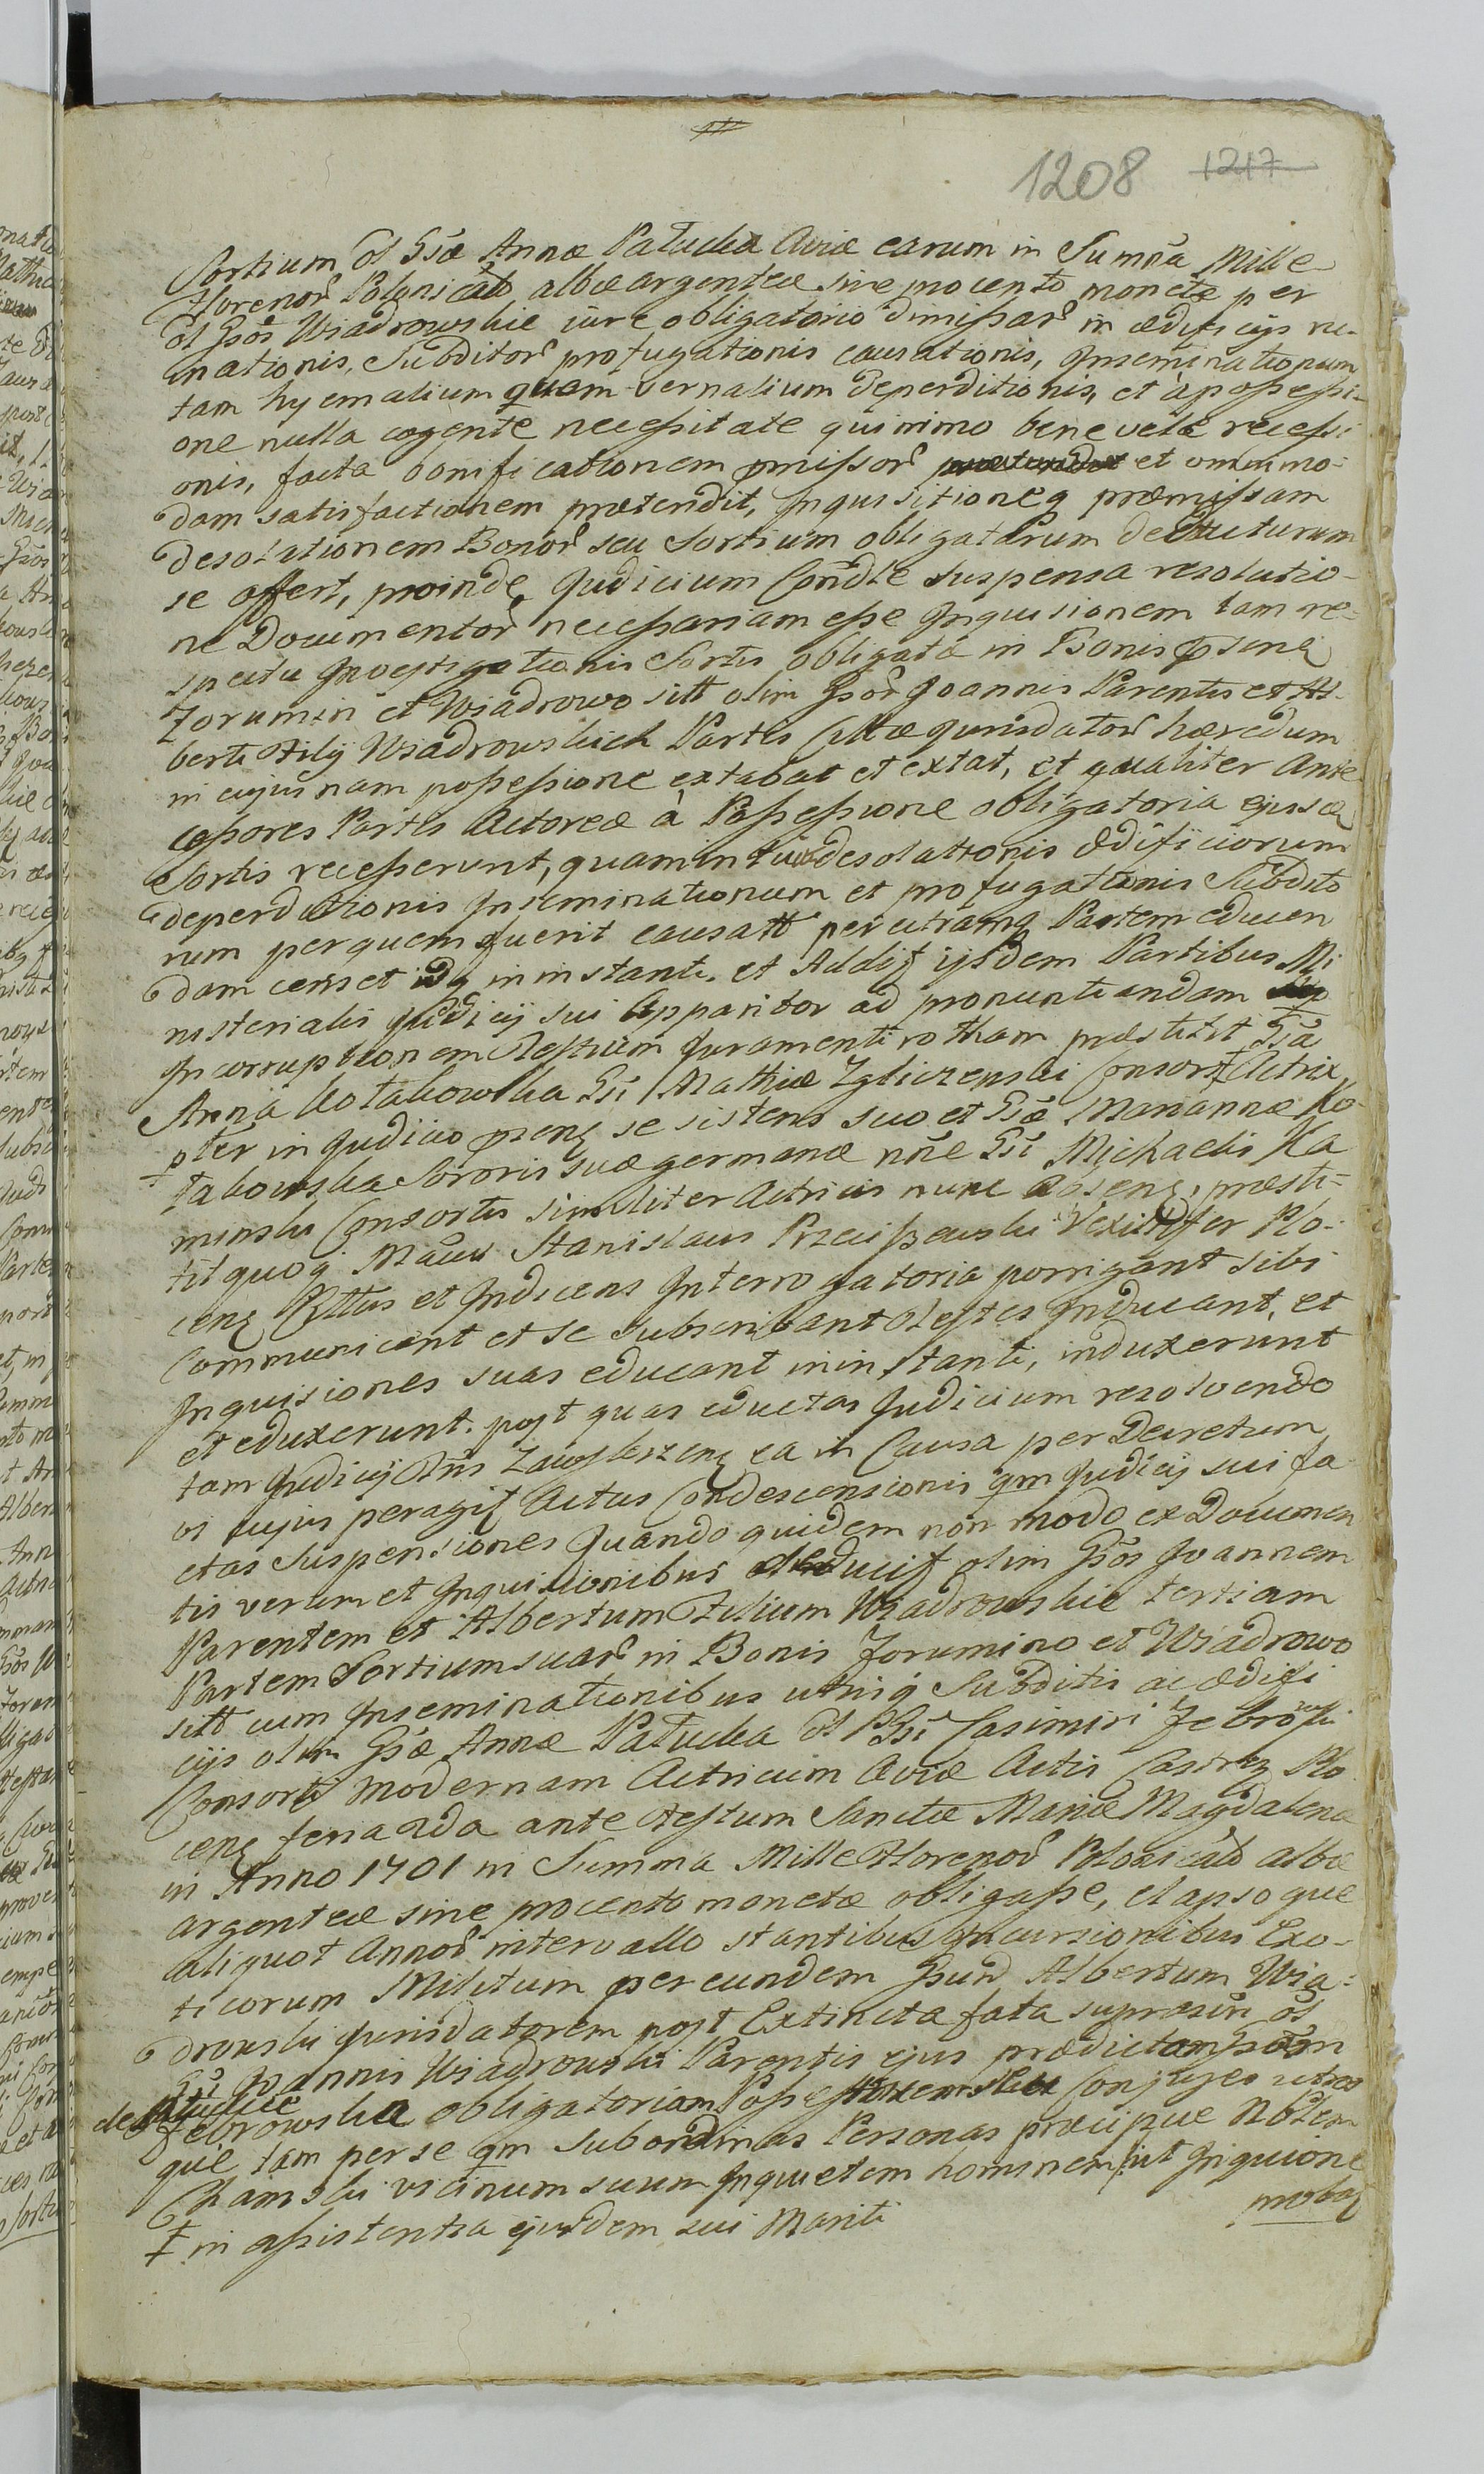 1208 1217
Sortium Ol Gsæ Annæ Pałucka Aviæ earum in Summa Mille
Florenor Polonicał albæ argenteæ sine procento monetæ per
Ol Gsos Wiadrowskie iure obligatorio dimissar in ædificijs ru-
inationis, Subditor profugationis causationis, Inseminationum
tam hyemalium quam vernalium deperditionis, et a possessi-
one nulla cogente necessitate quinimo benevole recessi
onis, facta bonificationem pmissor et omnimo-
dam satisfactionem prætendit, Inquisitioneq præmissam
desolationem Bonor seu Sortium obligatarum deducturum
se offert, proinde, Judicium Condle suspensa resolutio-
ne Documentor necessariam esse Inquisionem tam re-
spectu Investigationis Sortis obligatæ in Bonis psenq
Zorumin et Wiadrowo sitt olim Gsor Joannis Parentis et Al-
berti Filij Wiadrowskich Partis Cittæ Jurisdator hæredum
in cujusnam possessione extabat et extat, et qualiter Ante
cessores Partis Actoreæ à Possessione obligatoria ejusd
Sortis recesserunt, quam intuitu desolationis ædificiorum
deperditionis Inseminationum et profugationis Subdito
rum per quem fuerit causatt per utramq Partem educen
dam censet idq in instanti. et Addit ijsdem Partibus Mi
nisterialis Judicij sui Apparitor ad pronuntiandam
Incorruptionem Testium Juramenti rotham præstitit Gsa
Anna Kołakowska Gsi Mathiæ Zgliczenski Consors Actrix
‡ pter in Judicio psenq se sistens suo et Gsæ Mariannæ Ko-
łakowska Sororis suæ germanæ nne Gsi Michaelis Ka
minski Consortis similiter Actricis nunc absenq, præsti-
tit quoq Mgcus Stanislaus Przeciszewski Vexillifer Plo-
cenq Cittus et Indicens Interrogatoria porrigant sibi
Communicent et se subscribant Testes Inducant, et
Inquisiones suas educant in instanti, induxerunt
et eduxerunt. post quas eductas Judicium resolvendo
tam Judicij Tris Zawskrzenq ea in Causa per Decretum
vi cujus peragit Actus Condescensionis qm Judicij sui fa
ctas Suspensiones Quandoquidem non modo ex Documen
tis verum et Inquisitionibus deducit olim Gsos Joannem
Parentem et Albertum Filium Wiadrowskie tertiam
Partem Sortium suar in Bonis Zorumino et Wiadrowo
sitt cum Inseminationibus utrisq Subditis ac ædifi
cijs olim Gsæ Annæ Pałucka Ol PGsi Casimiri Zebrowski
Consorti modernam Actricum Aviæ Actis Castrenq Plo
cenq feria 2da ante Festum Sanctæ Mariæ Magdalenæ
in Anno 1701 in Summa Mille Florenor Polonicał albæ
argenteæ sine procento monetæ obligasse, elapsoque
aliquot Annor intervallo stantibus Incursionibus Exo-
ticorum Militum per eundem Gsum Albertum Wia-
drowski Jurisdatorem post Extincta fata suprascri ol
Gsi Joannis Wiadrowski Parentis ejus prædictam Gsam
de Pałuckie Zebrowska obligatoriam Possessricem Conjuges utros
que tam per se qm subordinas Personas præcipue Nblem
Chamski vicinum suum Inquietem hominem, ut Inquione
probaq
‡ in assistentia ejusdem sui Mariti